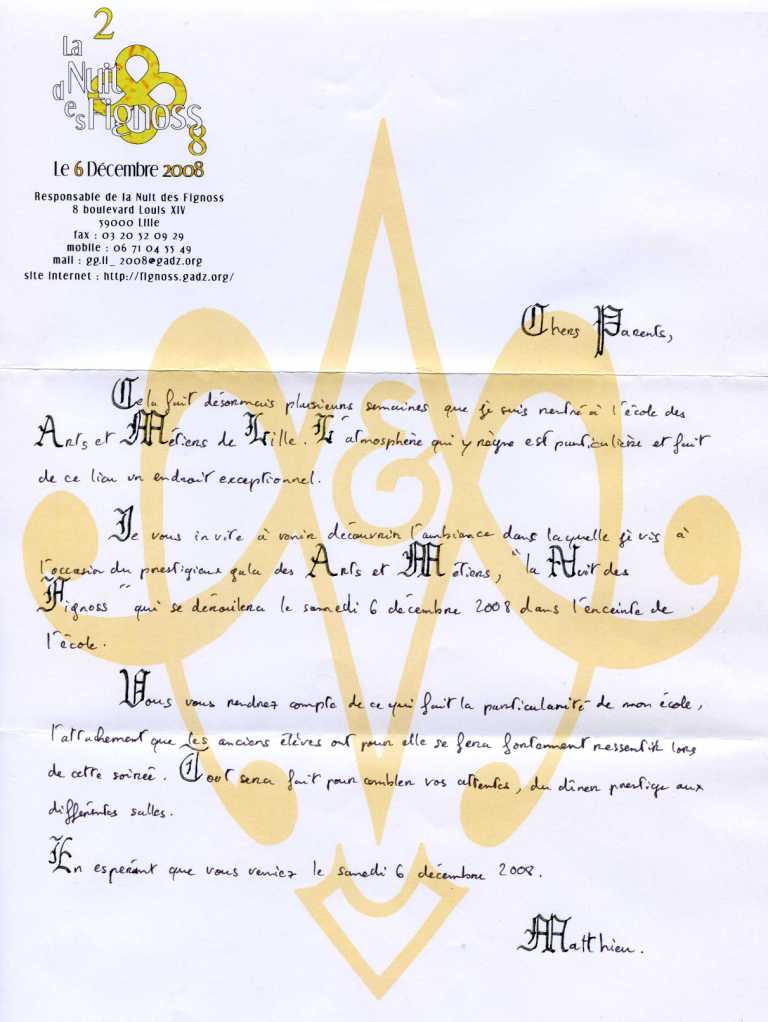 2
La
Nuit
des
Fignoss
8
Le 6 Décembre 2008
Responsable de la Nuit des Fignoss
8 boulevard Louis XIV
59000 Lille
fax : 03 20 52 09 29
mobile : 06 71 04 55 49
mail : gg.li_ 2008@gadz.org
site internet : http://fignoss.gadz.org/
Chers Parents,
Cela fait désormais plusieurs semaines que je suis rentré à l'école des
Arts et Métiers de Lille. L'atmosphère qui y règne est particulière et fait
de ce lieu un endroit exceptionnel.
&
Je vous invite à venir découvrir l'ambiance dans laquelle je vis à
l'occasion du prestigieux gala des Arts et Métiers, "la Nuit des
Fignoss" qui se déroulera le samedi 6 décembre 2008 dans l'enceinte de
l'école.
Vous vous rendrez compte de ce qui fait la particularité de mon école,
l'attachement que les anciens élèves ont pour elle se fera fortement ressentir lors
de cette soirée. Tout sera fait pour combler vos attentes, du dîner prestige aux
différentes salles.
En espérant que vous veniez le samedi 6 décembre 2008.
Matthieu.